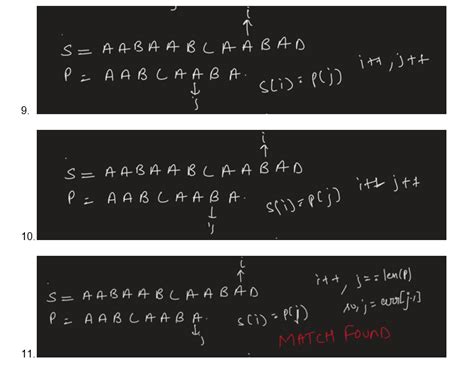 i
↑
S = A A B A A B C A A B A D
P = A A B C A A B A. S(i) = P(j) i++, j++
↓
j
9.
i
↑
S = A A B A A B C A A B A D
P = A A B C A A B A. S(i) = P(j) i++ j++
↓
j
10.
i
↑
S = A A B A A B C A A B A D i++, j == len(P)
P = A A B C A A B A. S(i) = P(j) so, j = arr[j-1]
↓
j
MATCH FOUND
11.